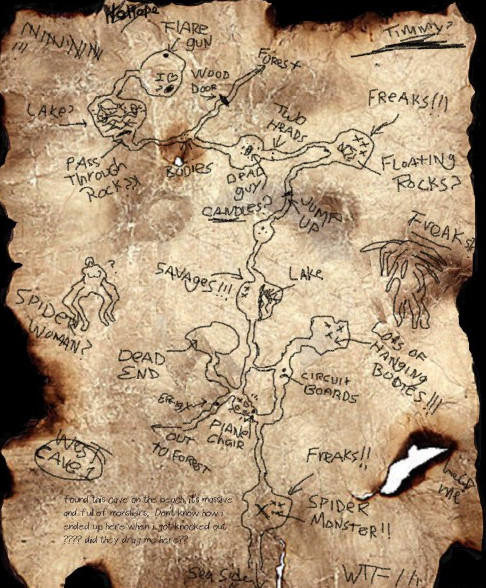 No Hope
Timmy?
FLARE
GUN
WOOD
DOOR
FOREST
LAKE?
TWO
HEADS
FREAKS!!!
PASS
THROUGH
ROCKS??
BODIES
DEAD
GUY!
FLOATING
ROCKS?
CANDLES?
JUMP
UP
FREAKS
SAVAGES!!!
LAKE
SPIDER
WOMAN?
?
LOTS OF
HANGING
BODIES!!!
DEAD
END
CIRCUIT
BOARDS
PIANO
CHAIR
OUT
TO FOREST
West
CAVE?
FREAKS!!
help
me
SPIDER
MONSTER!!
found this cave on the beach, its massive
and full of monsters. Dont know how i
ended up here when i got knocked out
???? did they drag me here??
Sea Side
WTF!!!